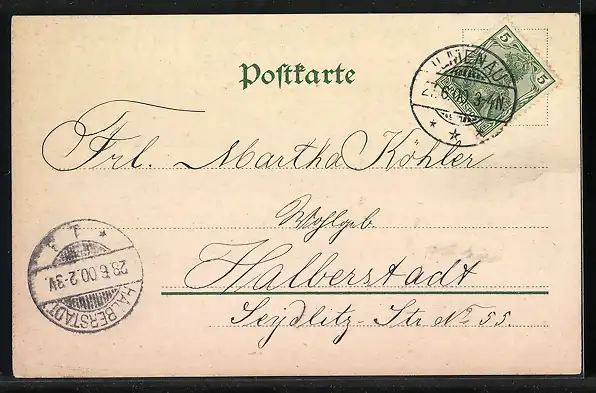 Postkarte
ILMENAU
5 5
27.6.00.3-4N.
Frl. Martha Köhler
Wohlgeb.
Halberstadt
Seydlitz-Str No 55.
* 1 *
28.6.00.2-3V.
HALBERSTADT